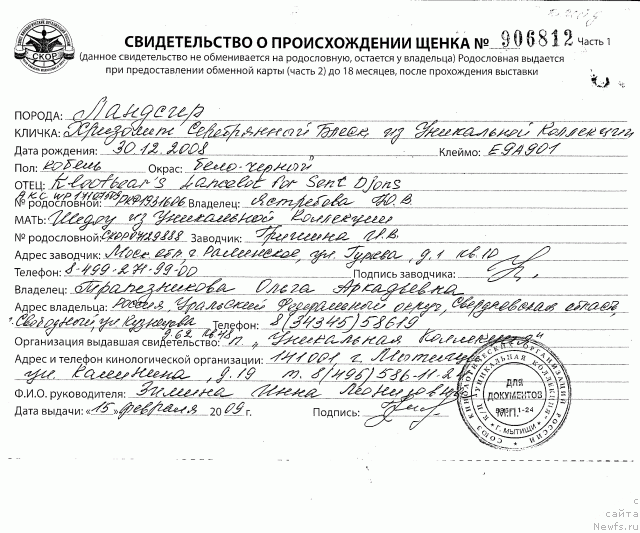 СКОР
СВИДЕТЕЛЬСТВО О ПРОИСХОЖДЕНИИ ЩЕНКА № 906812 Часть 1
(данное свидетельство не обменивается на родословную, остается у владельца) Родословная выдается
при предоставлении обменной карты (часть 2) до 18 месяцев, после прохождения выставки
ПОРОДА: Ландсир
КЛИЧКА: Хризолит Серебрянный Блеск из Уникальной Коллекции
Дата рождения: 30.12.2008 Клеймо: E9A901
Пол: кобель Окрас: бело-черной
ОТЕЦ: Klootbear's Lancelot for Sent Djons
№ родословной: РКФ1931606 Владелец: Ястребова Ю.В.
МАТЬ: Шедеу из Уникальной Коллекции
№ родословной: СКОР0429888 Заводчик: Гришина И.В.
Адрес заводчик: Моск обл г. Раменское, ул. Гурьева, д.1 кв.10
Телефон: 8-499-271-99-00 Подпись заводчика:
Владелец: Трапезникова Ольга Аркадьевна
Адрес владельца: Россия, Уральский Федеральный округ, Свердловская область,
г. Свободный, ул. Кузнецова Телефон: 8(34345)58619
д.62 кв.48
Организация выдавшая свидетельство: "Уникальная Коллекция"
Адрес и телефон кинологической организации: 141001 г. Мытищи
ул. Калинина, д.19 т. 8(495)586-11-24
Ф.И.О. руководителя: Зимина Инна Леонидовна
Дата выдачи: «15» февраля 2009г. Подпись:
СОЮЗ КИНОЛОГИЧЕСКИХ ОРГАНИЗАЦИЙ РОССИИ
К/П "УНИКАЛЬНАЯ КОЛЛЕКЦИЯ"
ДЛЯ
ДОКУМЕНТОВ
М.П.
г. МЫТИЩИ
с
сайта
Newfs.ru